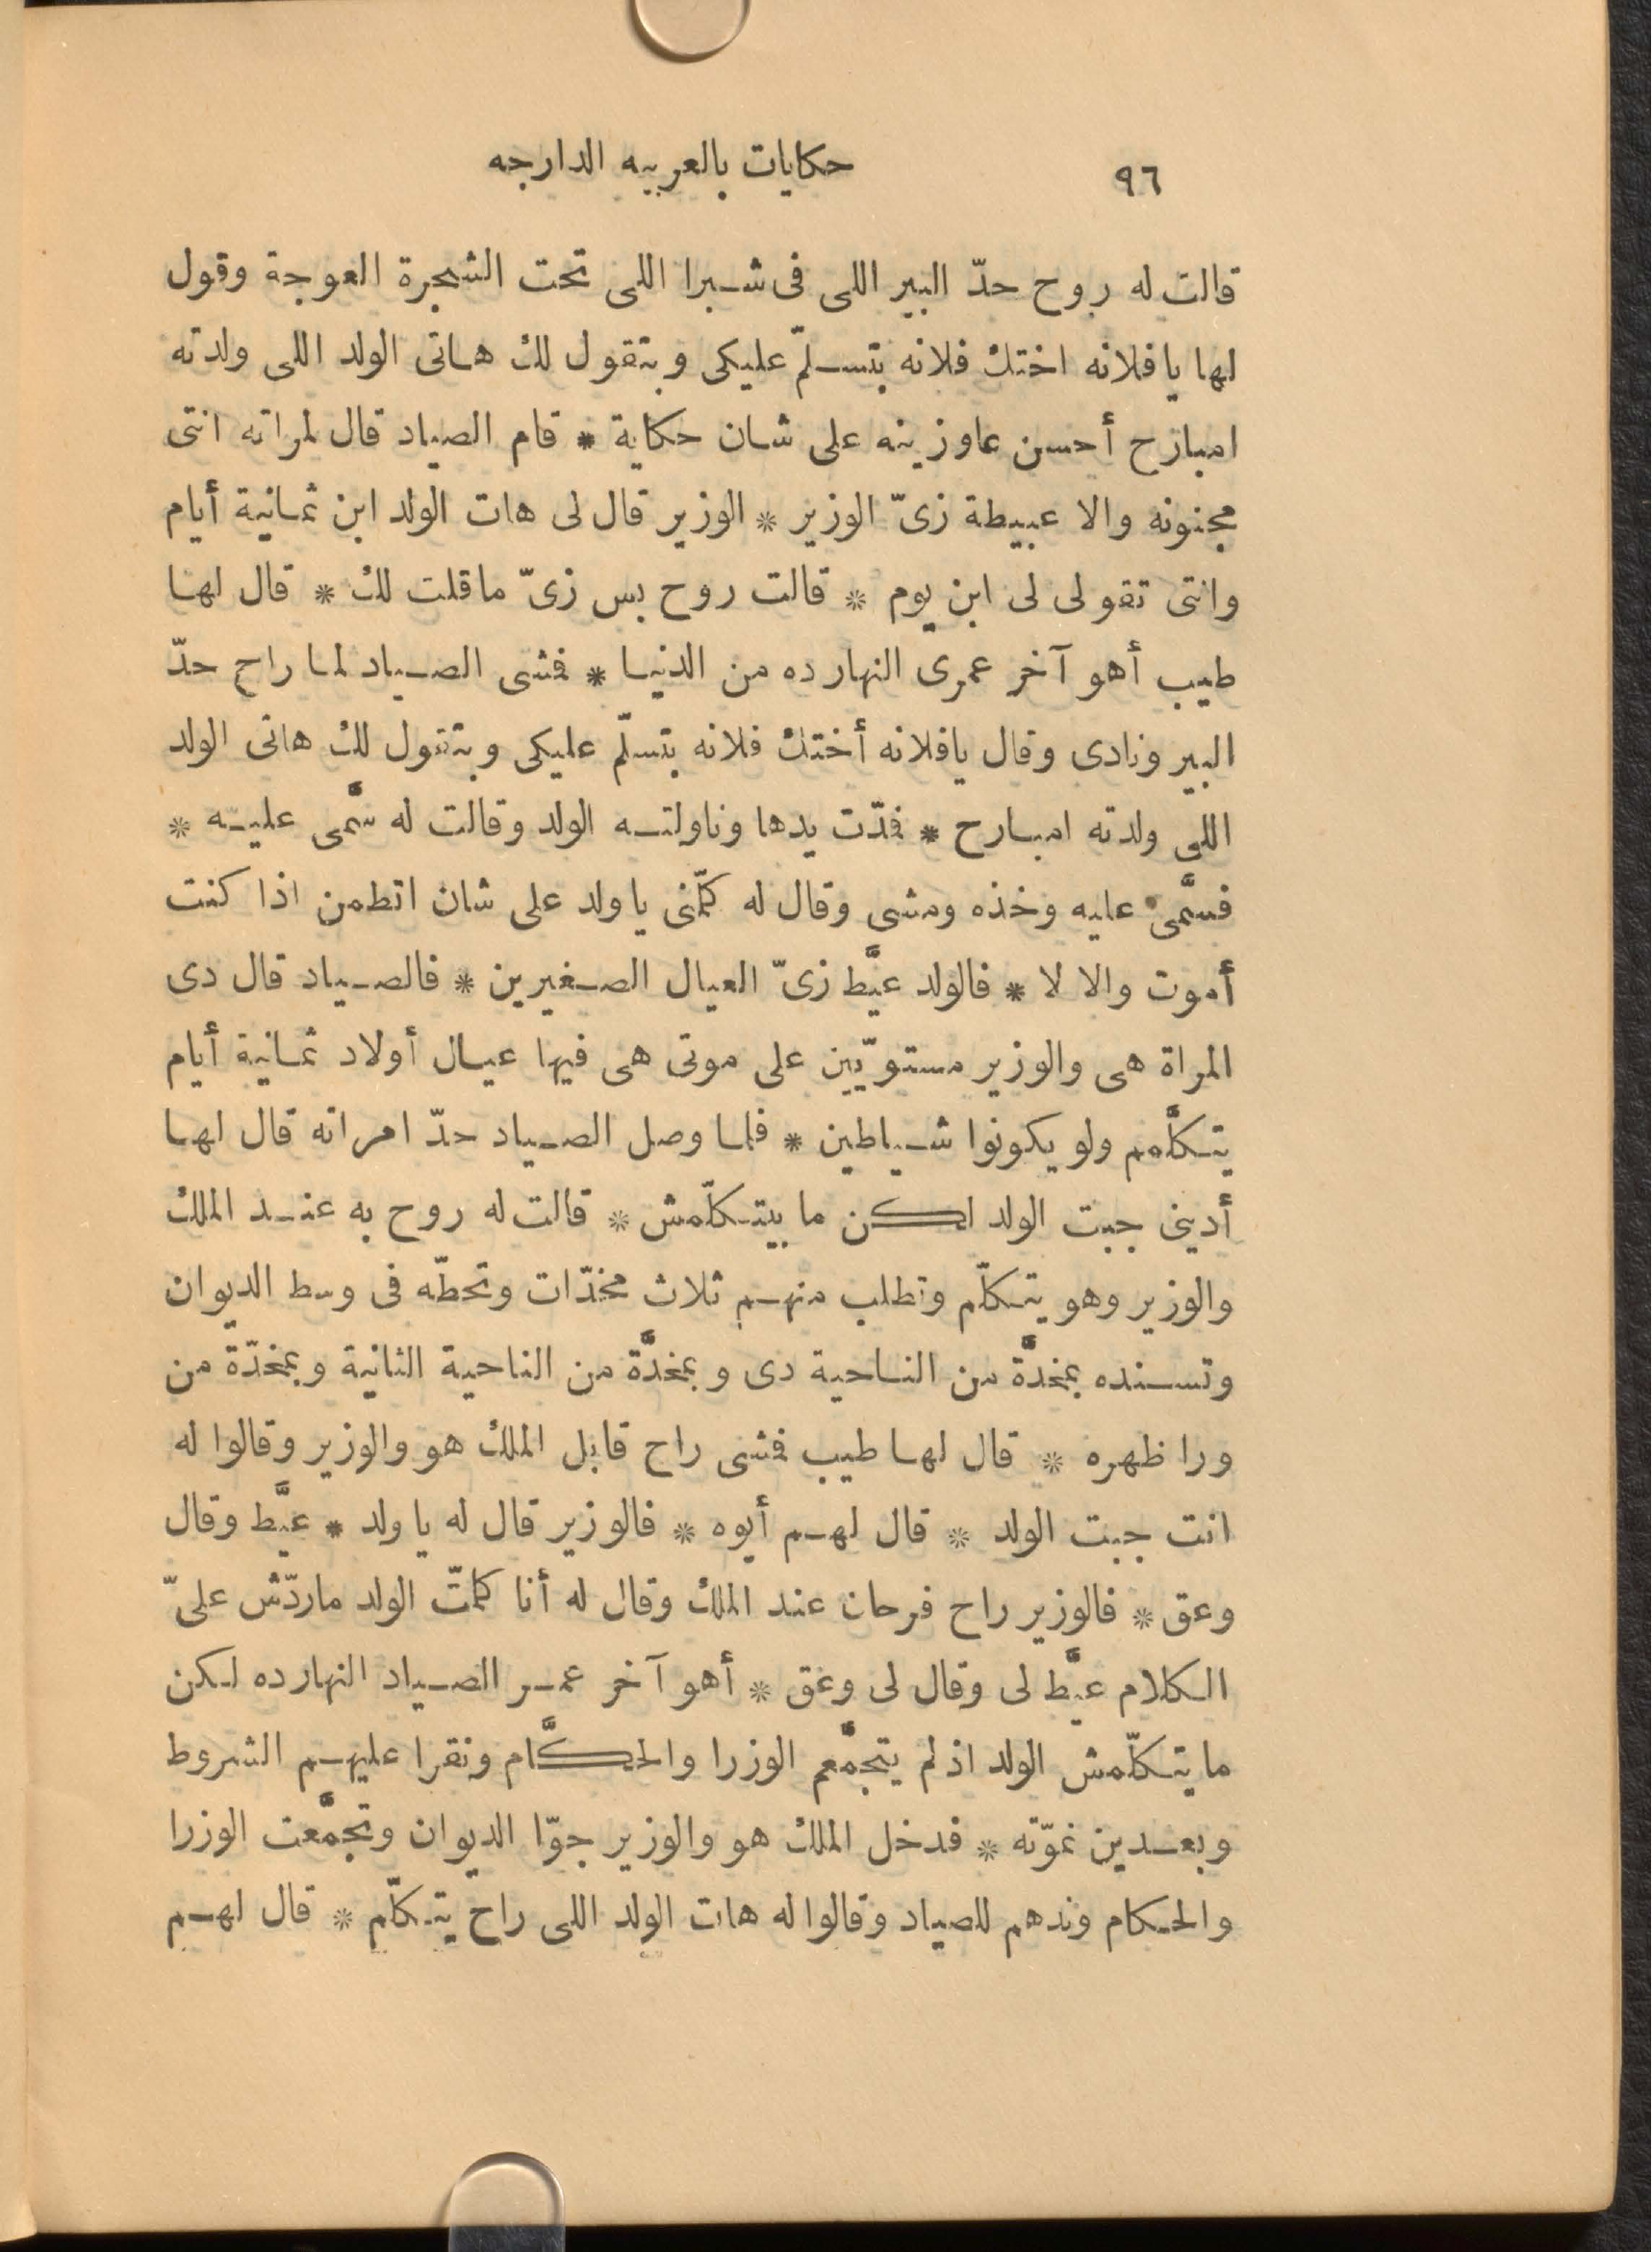 ٩٦ حكايات بالعربيه الدارجه
قالت له روح حدّ البير اللى فى شبرا اللى تحت الشجرة العوجة وقول
لها يافلانه اختك فلانه بتسلّم عليكى وبتقول لك هاتى الولد اللى ولدته
امبارح أحسن عاوزينه على شان حكاية * قام الصياد قال لمراته انتى
مجنونه والا عبيطة زىّ الوزير * الوزير قال لى هات الولد ابن ثمانية أيام
وانتى تقولى لى ابن يوم * قالت روح بس زىّ ماقلت لك * قال لها
طيب أهو آخر عمرى النهارده من الدنيا * فمشى الصياد لما راح حدّ
البير ونادى وقال يافلانه أختك فلانه بتسلّم عليكى وبتقول لك هاتى الولد
اللى ولدته امبارح * فمدّت يدها وناولته الولد وقالت له سَّمى عليه *
فسَّمى عليه وخذه ومشى وقال له كلّمنى ياولد على شان اتطمن اذا كنت
أموت والا لا * فالولد عيَّط زىّ العيال الصغيرين * فالصياد قال دى
المراة هى والوزير مستويّين على موتى هى فيها عيال أولاد ثمانية أيام
يتكلَّموم ولو يكونوا شياطين * فلما وصل الصياد حدّ امراته قال لها
أدينى جبت الولد لكن ما بيتكلّمش * قالت له روح به عند الملك
والوزير وهو يتكلّم وتطلب منهم ثلاث مخدّات وتحطّه فى وسط الديوان
وتسنده بمخدَّة من الناحية دى وبمخدَّة من الناحية الثانية وبمخدّة من
ورا ظهره * قال لها طيب فمشى راح قابل الملك هو والوزير وقالوا له
انت جبت الولد * قال لهم أيوه * فالوزير قال له ياولد * عيَّط وقال
وعق * فالوزير راح فرحان عند الملك وقال له أنا كلمتّ الولد ماردّش علىّ
الكلام عيَّط لى وقال لى وعق * أهو آخر عمر الصياد النهارده لكن
ما يتكلّمش الولد اذ لم يتجمَّعم الوزرا والحكَّام ونقرا عليهم الشروط
وبعدين نموّته * فدخل الملك هو والوزير جوّا الديوان وتجمَّعت الوزرا
والحكام وندهم للصياد وقالوا له هات الولد اللى راح يتكلّم * قال لهم